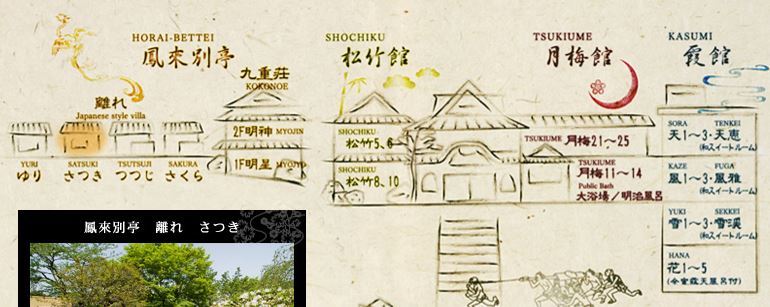 HORAI-BETTEI
鳳來別亭
九重荘
KOKONOE
離れ
Japanese style villa
2F明神 MYOJIN
1F明星 MYOJYO
YURI
ゆり
SATSUKI
さつき
TSUTSUJI
つつじ
SAKURA
さくら
SHOCHIKU
松竹館
SHOCHIKU
松竹5、6
SHOCHIKU
松竹8、10
TSUKIUME
月梅館
TSUKIUME 月梅21〜25
TSUKIUME
月梅11〜14
Public Bath
大浴場/明治風呂
KASUMI
霞館
SORA TENKEI
天1〜3・天恵
(和スイートルーム)
KAZE FUGA
風1〜3・風雅
(和スイートルーム)
YUKI SEKKEI
雪1〜3・雪渓
(和スイートルーム)
HANA
花1〜5
(全室露天風呂付)
鳳來別亭 離れ さつき